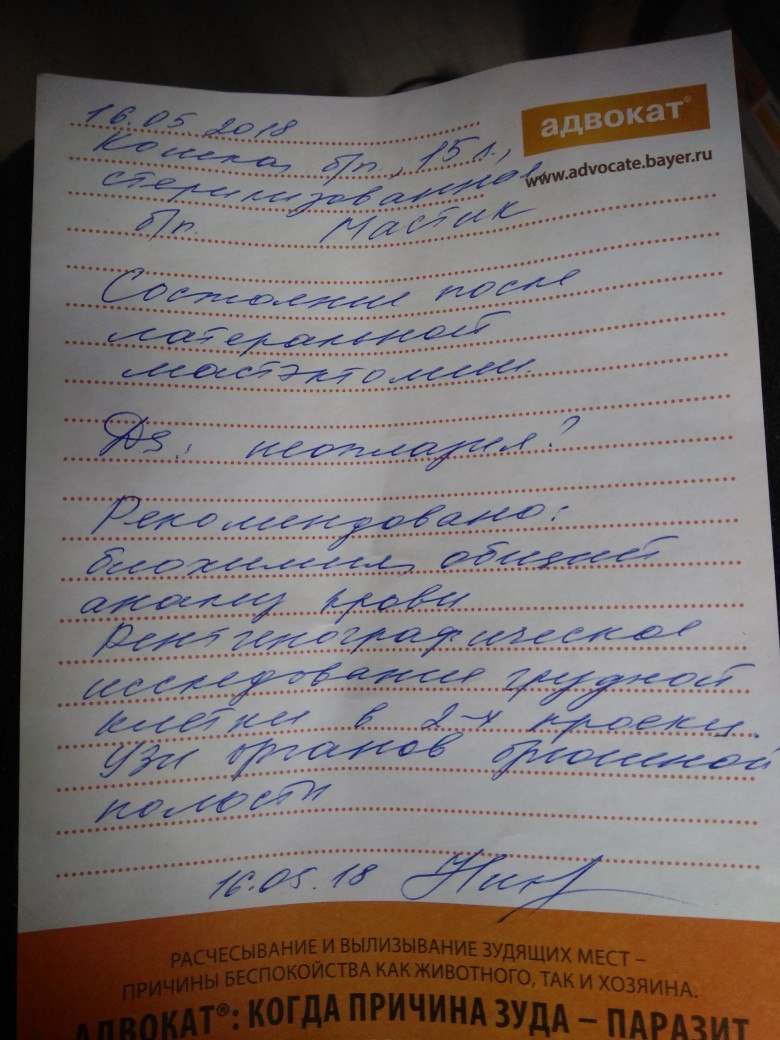 адвокат®
www.advocate.bayer.ru
16.05.2018
Кошка б/п, 15 л.,
стерилизованная,
б/п. Мастик
Состояние после
латеральной
мастэктомии.
Ds: неоплазия?
Рекомендовано:
биохимия, общий
анализ крови
Рентгенографическое
исследование грудной
клетки в 2-х проекц.
УЗИ органов брюшной
полости
16.05.18
РАСЧЕСЫВАНИЕ И ВЫЛИЗЫВАНИЕ ЗУДЯЩИХ МЕСТ –
ПРИЧИНЫ БЕСПОКОЙСТВА КАК ЖИВОТНОГО, ТАК И ХОЗЯИНА.
АДВОКАТ®: КОГДА ПРИЧИНА ЗУДА – ПАРАЗИТ